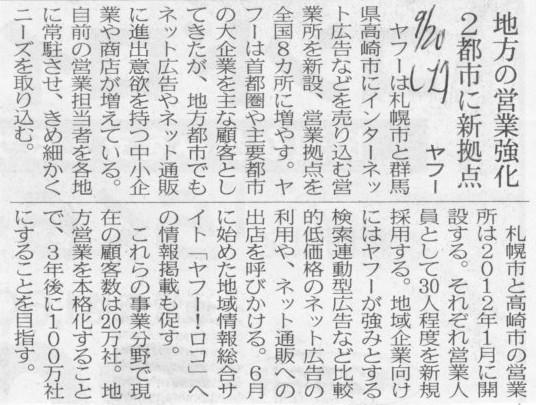 地方の営業強化
2都市に新拠点
ヤフー
9/20
ヤフーは札幌市と群馬
県高崎市にインターネッ
ト広告などを売り込む営
業所を新設、営業拠点を
全国8カ所に増やす。ヤ
フーは首都圏や主要都市
の大企業を主な顧客とし
てきたが、地方都市でも
ネット広告やネット通販
に進出意欲を持つ中小企
業や商店が増えている。
自前の営業担当者を各地
に常駐させ、きめ細かく
ニーズを取り込む。
札幌市と高崎市の営業
所は2012年1月に開
設する。それぞれ営業人
員として30人程度を新規
採用する。地域企業向け
にはヤフーが強みとする
検索連動型広告など比較
的低価格のネット広告の
利用や、ネット通販への
出店を呼びかける。6月
に始めた地域情報総合サ
イト「ヤフー!ロコ」へ
の情報掲載も促す。
これらの事業分野で現
在の顧客数は20万社。地
方営業を本格化すること
で、3年後に100万社
にすることを目指す。